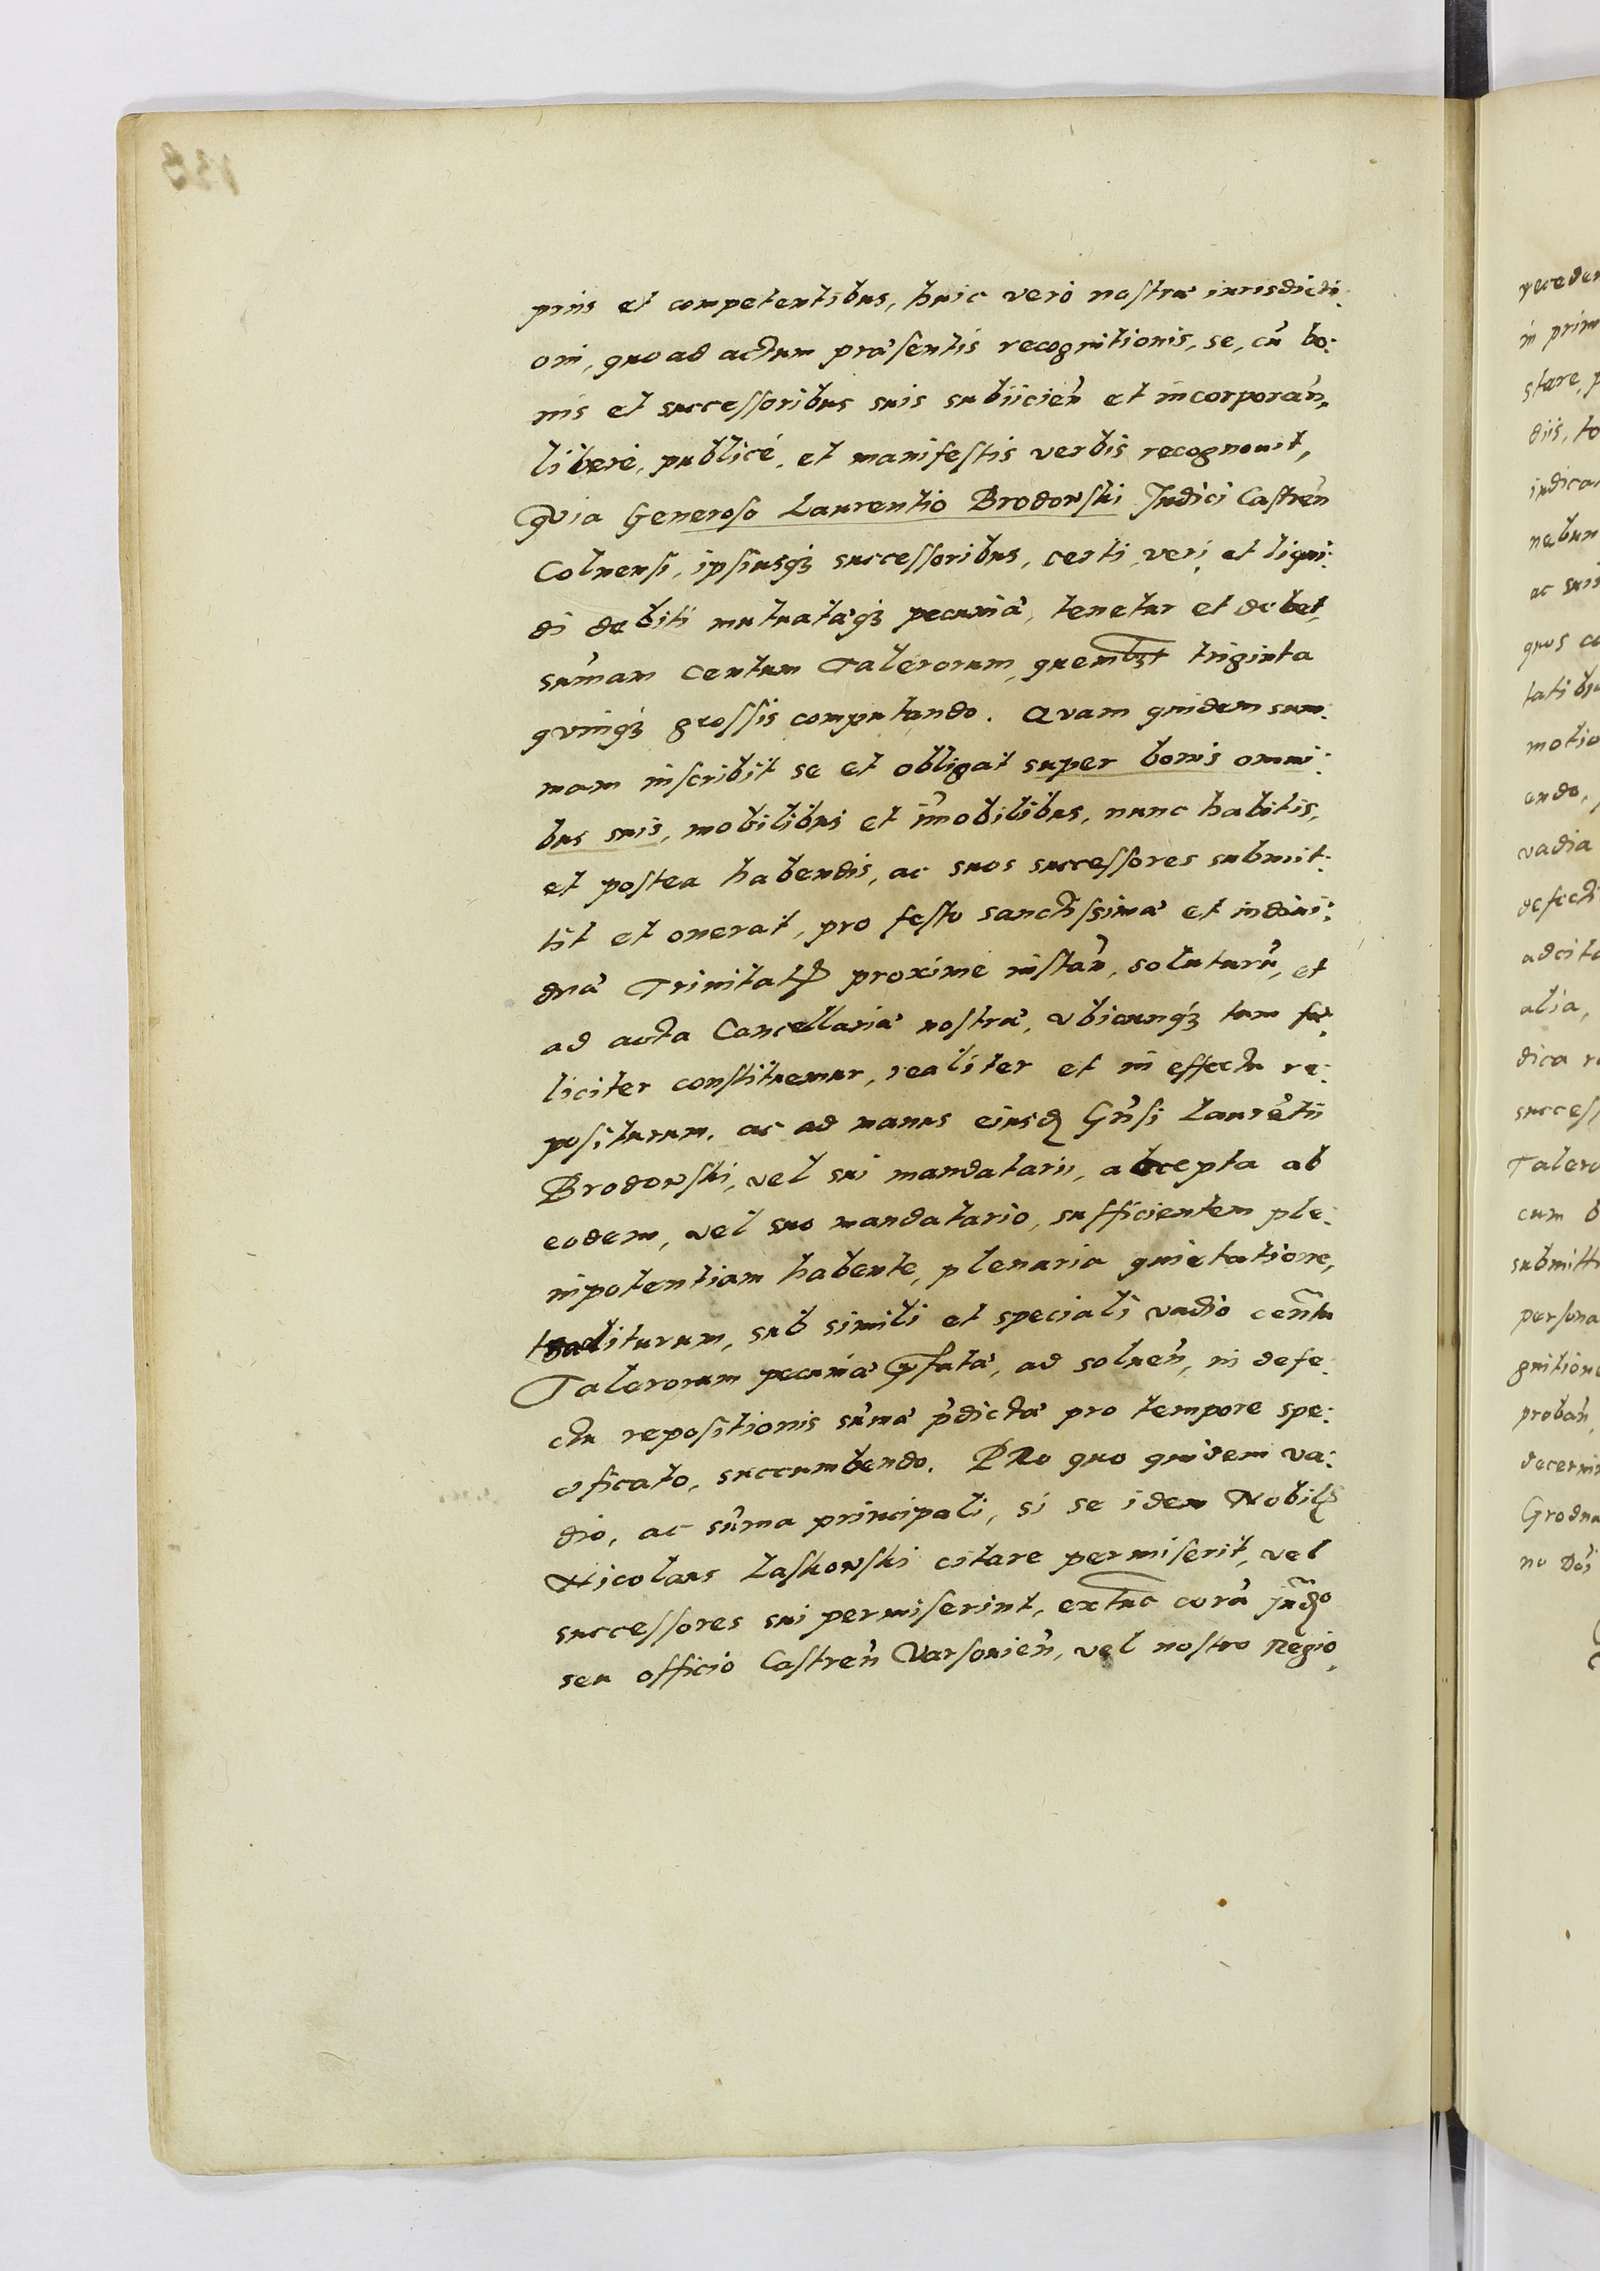 priis et competentibus, huic verò nostræ iurisdicti:
oni, quo ad actum præsentis recognitionis, se, cũ bo:
nis et successoribus suis subiicieñ et incorporañ,
liberè, publicè, et manifestis verbis recognouit,
Quia Generoso Laurentio Brodowski Judici Castreñ
Colnensi, ipsiusq₃ successoribus, certi, veri, et liqui:
di debiti mutuatæq₃ pecuniæ, tenetur et debet,
sum̃am Centum Talerorum, quemlibet triginta
quinq₃ grossis computando. Quam quidem sum:
mam inscribit se et obligat super bonis omni:
bus suis, mobilibus et im̃obilibus, nunc habitis,
et postea habendis, ac suos successores submit:
tit et onerat, pro festo sanctissimæ et indiui:
duæ Trinitatis proximè instañ, soluturũ, et
ad acta Cancellariæ nostræ, vbicunq₃ tum fæ:
liciter constituemur, realiter et in effectu re:
positurum, ac ad manus eiusd Gñsi Laurẽtii
Brodowski, vel sui mandatarii, accepta ab
eodem, vel suo mandatario, sufficientem ple:
nipotentiam habente, plenaria quietatione,
traditurum, sub simili et speciali vadio centũ
Talerorum pecuniæ pfatæ, ad solueñ, in defe:
ctu repositionis sum̃æ p̃dictæ pro tempore spe:
cificato, succumbendo. PRo quo quidem va:
dio, ac sum̃a principali, si se idem Nobilis
Nicolaus Laskowski citare permiserit, vel
successores sui permiserint, extunc corã Jud̃o
seu officio Castreñ Varsouieñ, vel nostro Regio,
in prim
stare, p
diis, to
indica
nebun
ac suis
quos co
tatibu
motio
ando,
vadia
defectu
adcita
alia,
dica
success
Talero
cum b
submitt
persona
gnitione
probañ
decerni
Grodn
no Doi